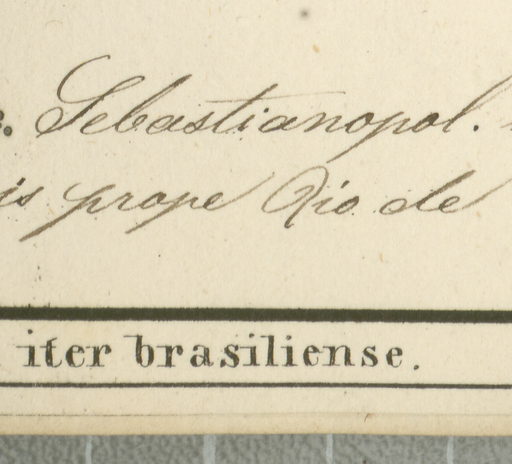 . Sebastianopol.
is prope Rio de
iter brasiliense.